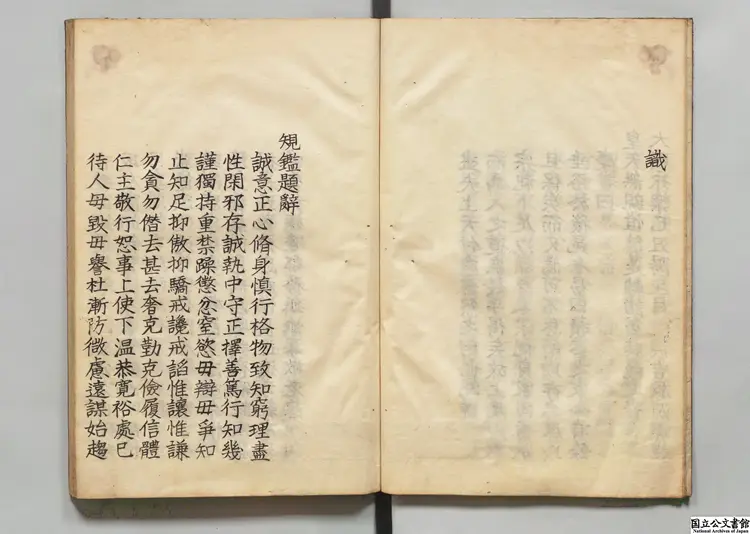 識
規鑑題辭
誠意正心脩身慎行格物致知窮理盡
性閑邪存誠執中守正擇善篤行知幾
謹獨持重禁躁懲忿窒慾毋辯毋爭知
止知足抑傲抑驕戒讒戒謟惟讓惟謙
勿貪勿僭去甚去奢克勤克儉履信體
仁主敬行恕事上使下温恭寛裕處已
待人毋毀毋譽杜漸防微慮遠謀始趨
国立公文書館
National Archives of Japan